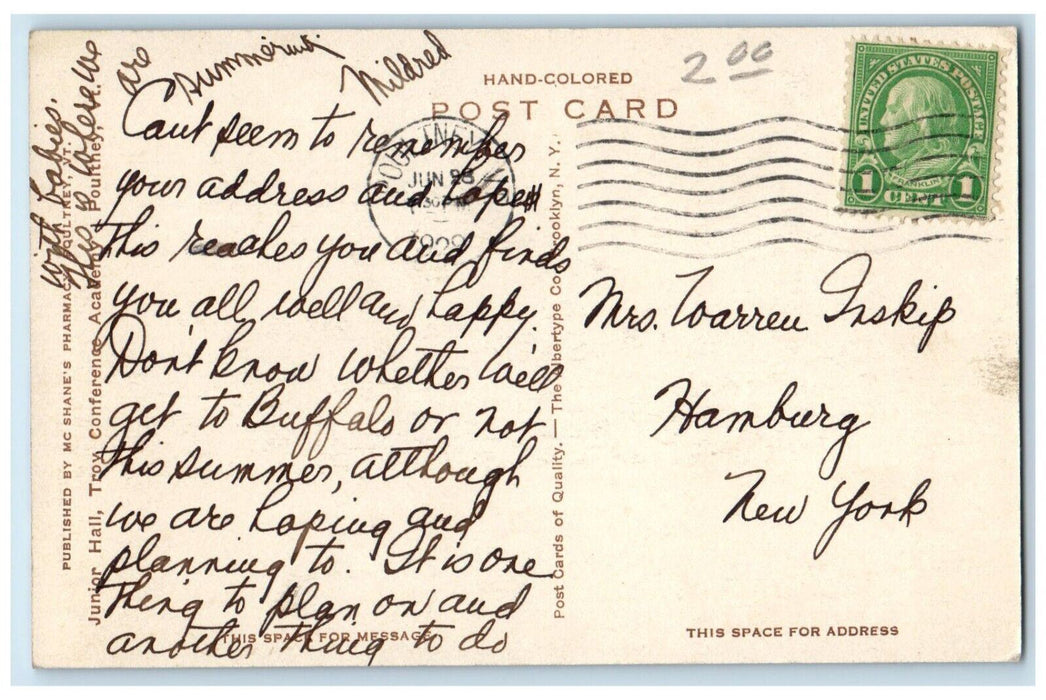 HAND-COLORED
POST CARD
2.00
UNITED STATES POSTAGE
FRANKLIN
1 CENT 1
POULTNEY
JUN 28
1929
Can't seem to remember
your address and hope
this reaches you and finds
you all well and happy.
Don't know whether we'll
get to Buffalo or not
this summer, although
we are hoping and
planning to. It is one
thing to plan on and
another thing to do
with babies.
is where we
are
summering.
Mildred
Mrs. Warren Inskip
Hamburg
New York
PUBLISHED BY MC SHANE'S PHARMACY, POULTNEY, VT.
Junior Hall, Troy Conference Academy, Poultney, Vt.
Post Cards of Quality. — The Albertype Co., Brooklyn, N. Y.
THIS SPACE FOR MESSAGE
THIS SPACE FOR ADDRESS